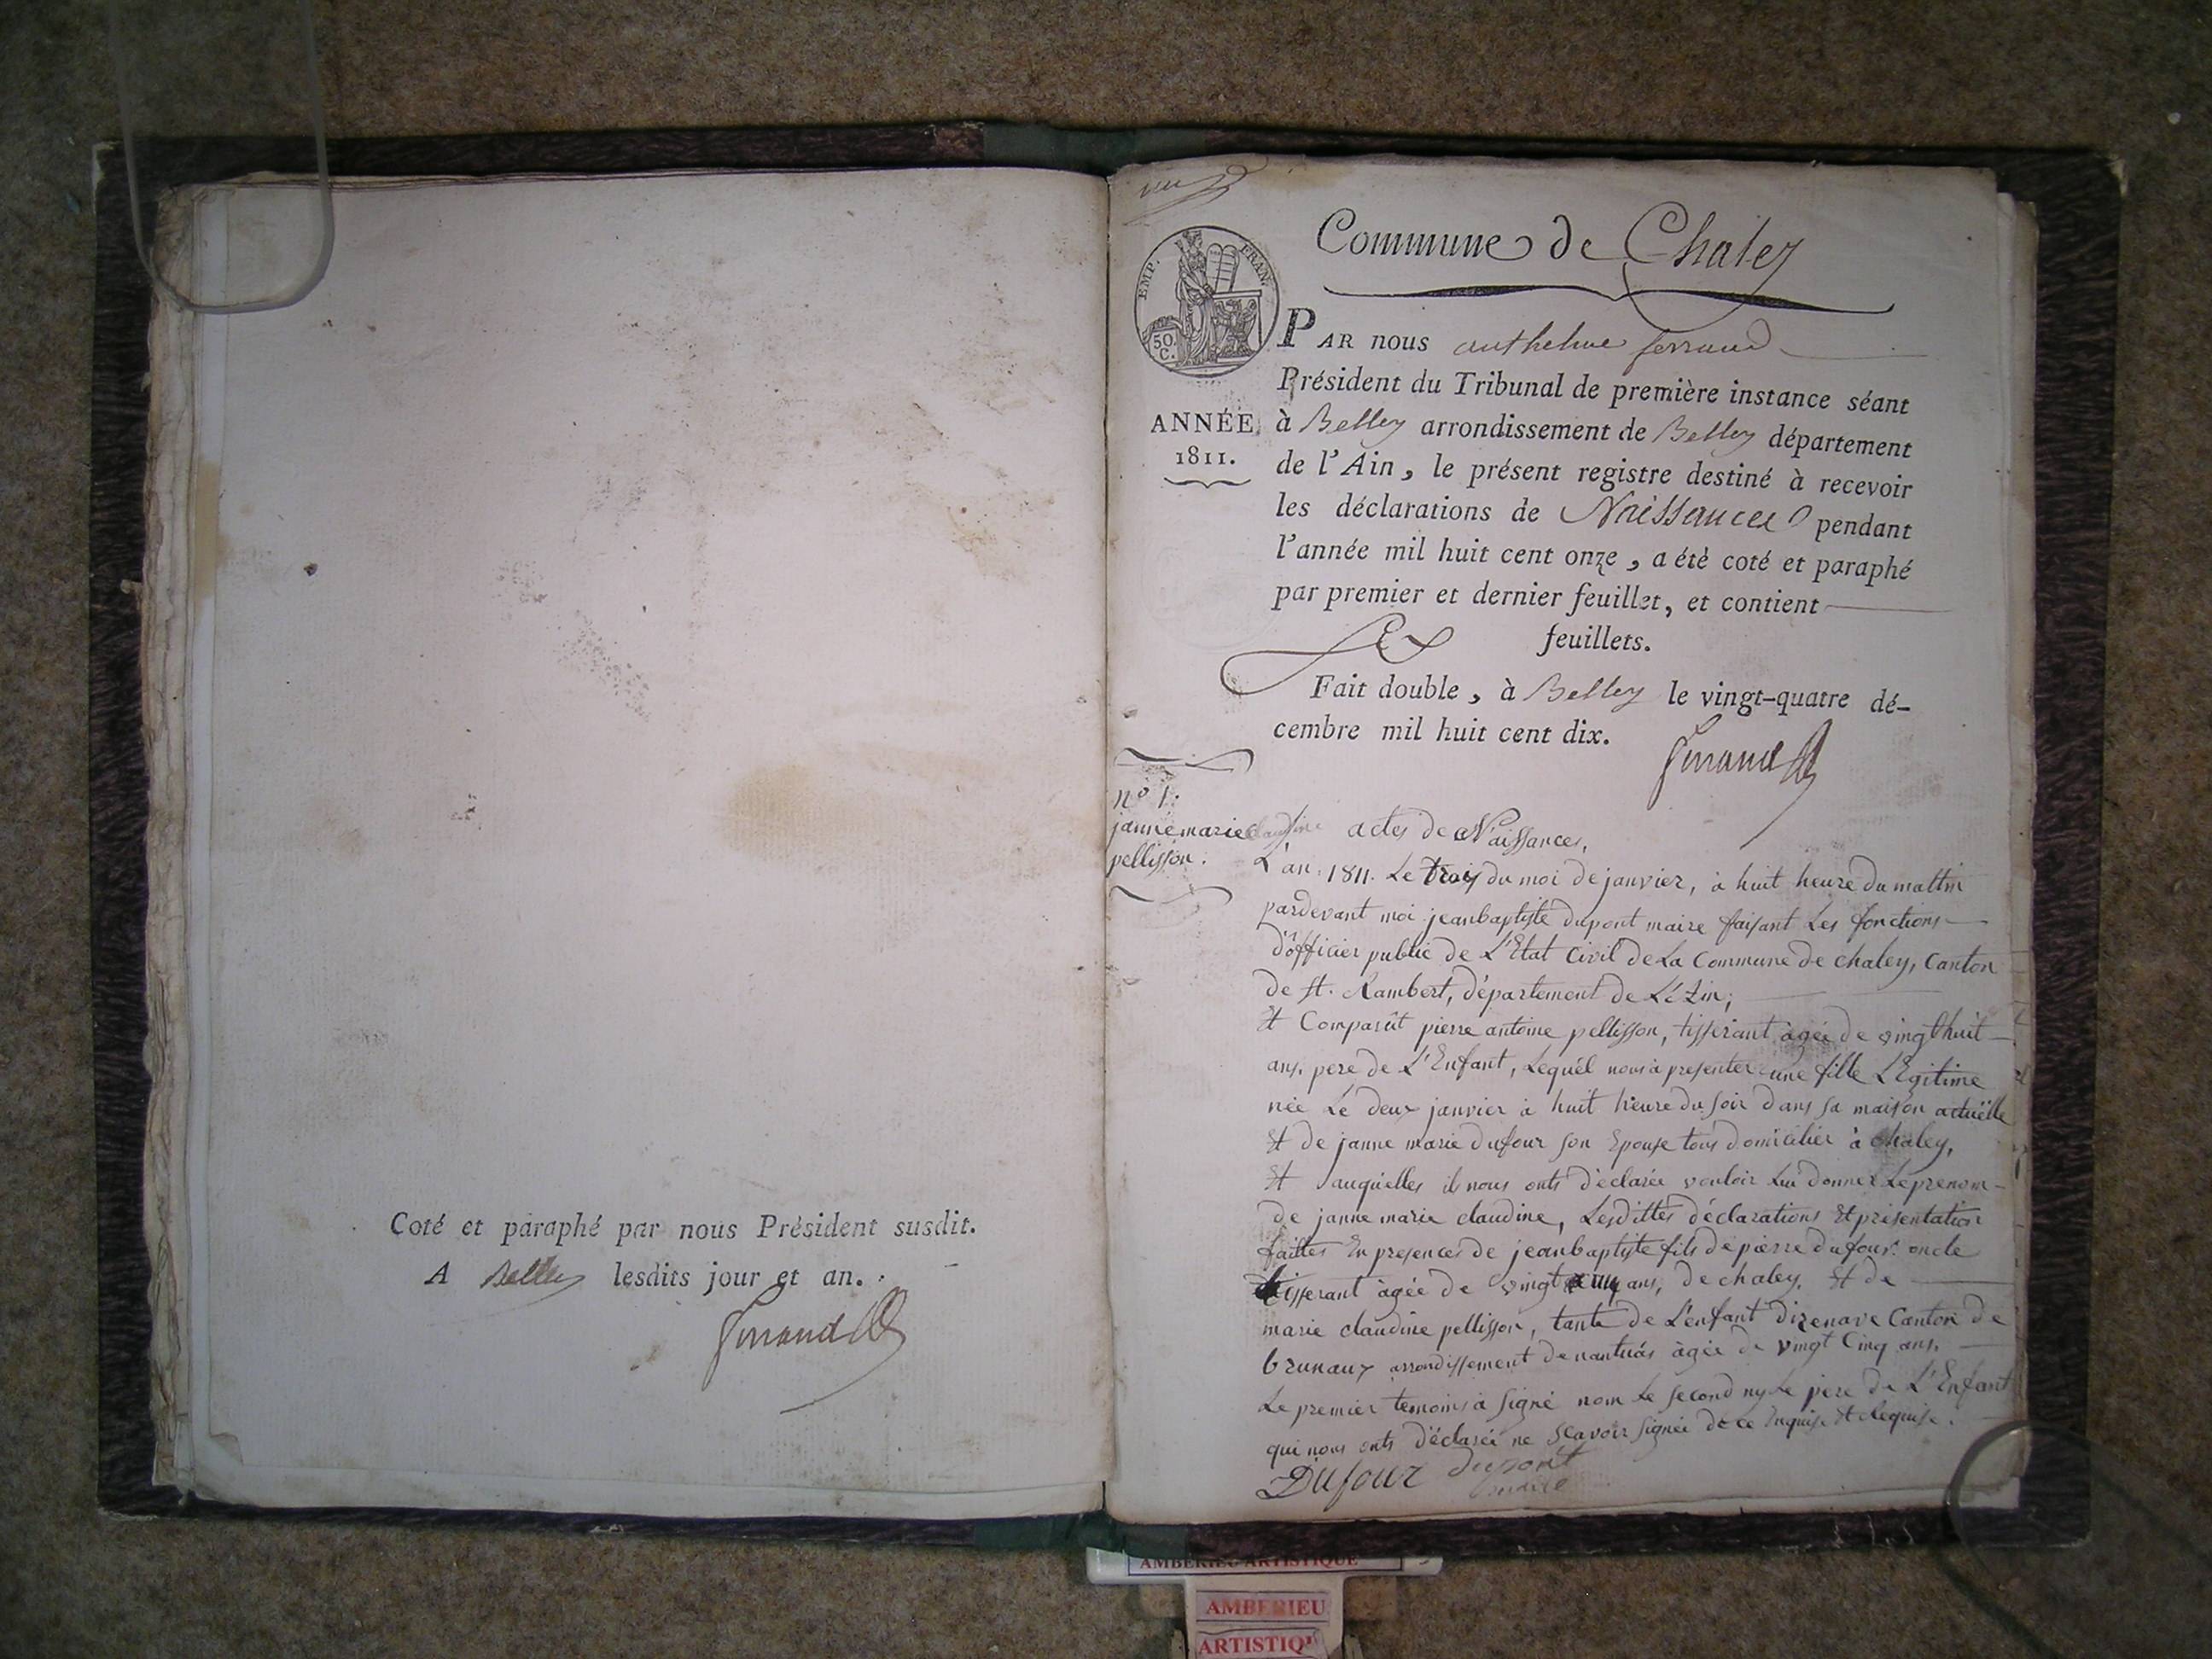 Coté et paraphé par nous Président susdit.
A Belley lesdits jour et an.
Ferrand
Commune de Chaley
EMP. FRAN.
50 C.
ANNÉE
1811.
PAR nous anthelme ferrand
Président du Tribunal de première instance séant
à Belley arrondissement de Belley département
de l'Ain, le présent registre destiné à recevoir
les déclarations de Naissances pendant
l'année mil huit cent onze, a été coté et paraphé
par premier et dernier feuillet, et contient
six feuillets.
Fait double, à Belley le vingt-quatre dé-
cembre mil huit cent dix.
Ferrand
n° 1.
janne marie claudine
pellisson.
actes de Naissances,
L'an 1811. Le trois du moi de janvier, à huit heure du mattin
pardevant moi jeanbaptiste dupont maire faisant Les fonctions
d'officier public de L'Etat Civil de La Commune de chaley, Canton
de st. Rambert, département de L'éẑin;
Et Comparût pierre antoine pellisson, tisserant àgée de vingt huit
ans, pere de L'Enfant, Lequél nous à presenter une fille L'Egitime
née Le deux janvier à huit heure du soir dans sa maison actuëlle
Et de janne marie dufour son Epouse tous domicilier à chaley,
Et auquelles ils nous onts déclarée vouloir Lui donner Le prenom
de janne marie claudine, Lesdittes déclarations Et présentation
faittes En presences de jeanbaptiste fils de pierre dufour oncle
tisserant àgée de vingt ans, de chaley. Et de
marie claudine pellisson, tante de L'enfant dizenave Canton de
brunaux arrondissement de nantuás àgée de vingt Cinq ans.
Le premier temoins à signé nom Le second ny Le pere de L'Enfant
qui nous onts déclaréé ne scavoir signée de ce Enquise Et Requise.
Dufour dupont
maire
AMBERIEU ARTISTIQUE
AMBERIEU
ARTISTIQU